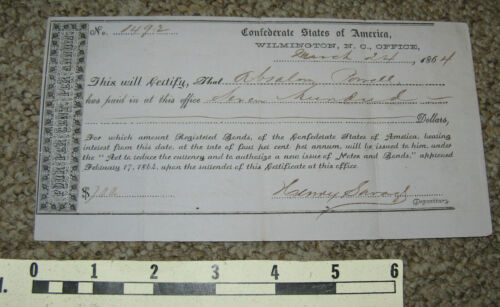 No. 1492
Confederate States of America,
WILMINGTON, N. C., OFFICE,
March 24, 1864
This will Certify, That Absalom Powell
has paid in at this office Seven hundred
Dollars,
For which amount Registered Bonds, of the Confederate States of America, bearing
interest from this date, at the rate of four per cent per annum, will be issued to him, under
the "Act to reduce the currency and to authorize a new issue of Notes and Bonds," approved
February 17, 1864, upon the surrender of this Certificate at this office.
$700
Henry Savage
Depositary.
0 1 2 3 4 5 6